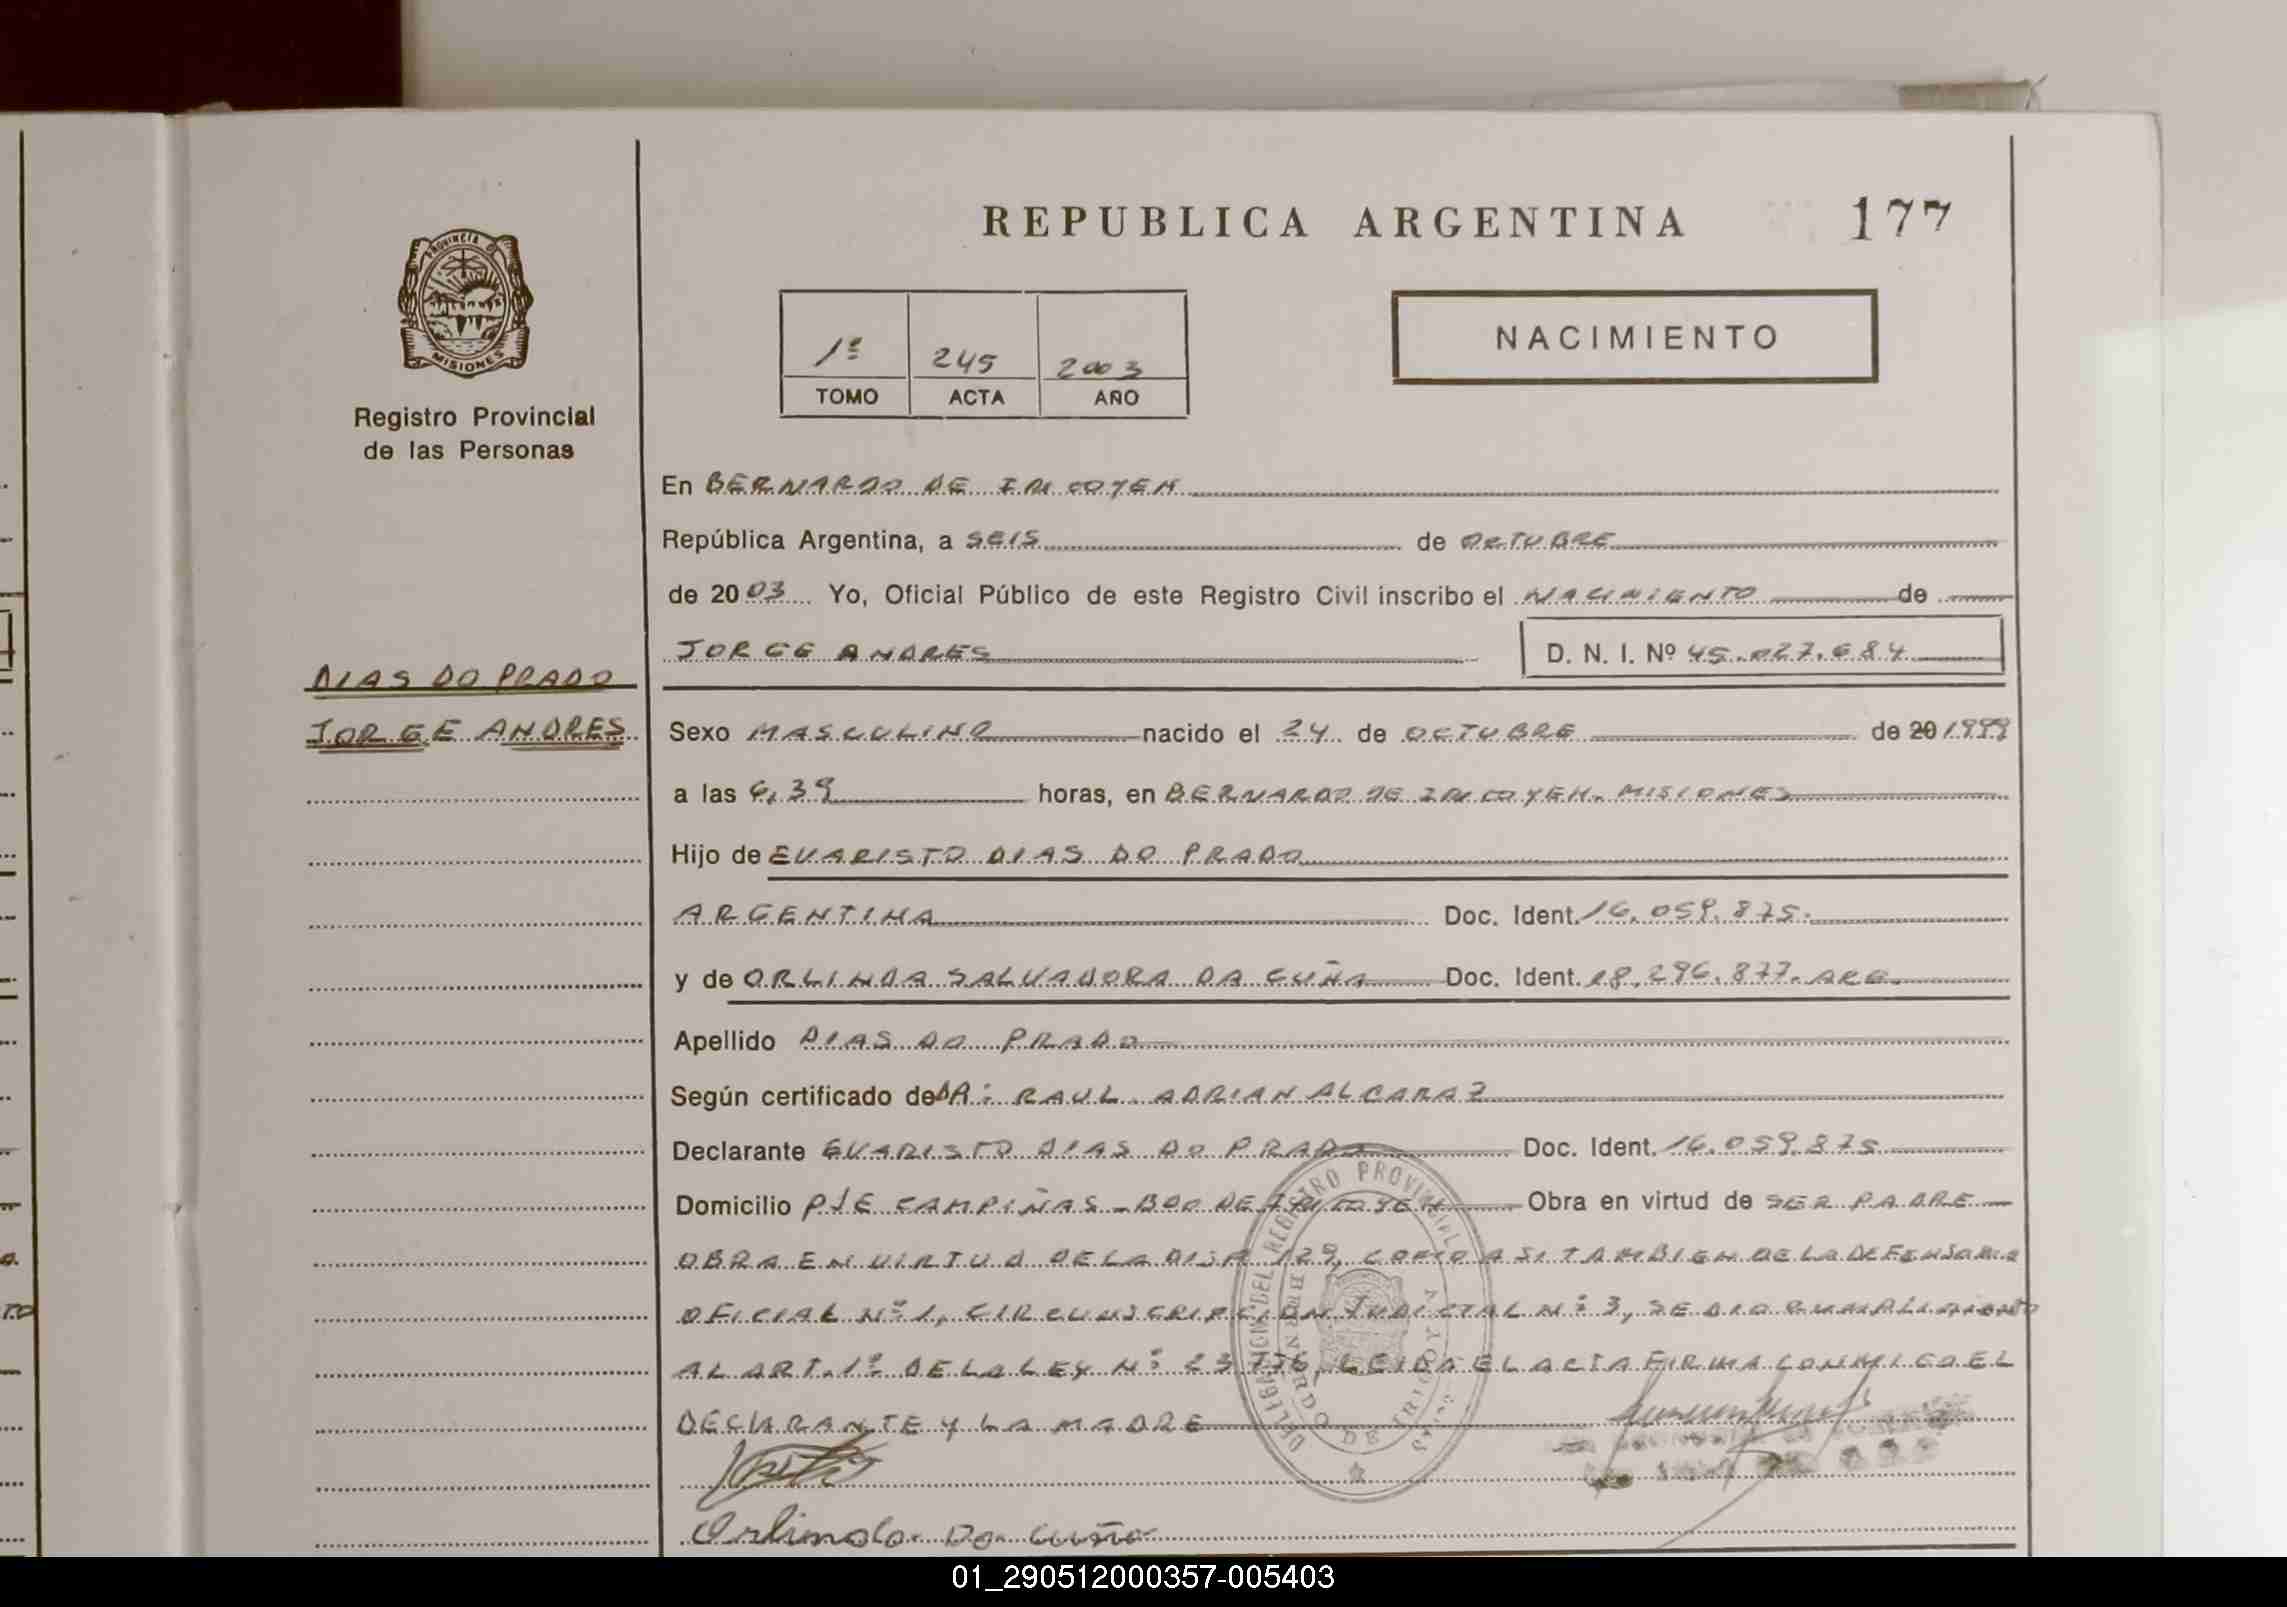 REPUBLICA ARGENTINA
177
PROVINCIA DE
MISIONES
Registro Provincial
de las Personas
1º 245 2003
TOMO ACTA AÑO
NACIMIENTO
En BERNARDO DE IRIGOYEN
República Argentina, a SEIS de OCTUBRE
de 2003 Yo, Oficial Público de este Registro Civil inscribo el NACIMIENTO de
JORGE ANDRES D. N. I. Nº 45.027.684
DIAS DO PRADO
JORGE ANDRES
Sexo MASCULINO nacido el 24 de OCTUBRE de 20 1999
a las 6,39 horas, en BERNARDO DE IRIGOYEN. MISIONES
Hijo de EVARISTO DIAS DO PRADO
ARGENTINA Doc. Ident. 16.059.875.
y de ORLINDA SALVADORA DA CUÑA Doc. Ident. 18.296.877. ARG.
Apellido DIAS DO PRADO
Según certificado de DR: RAUL ADRIAN ALCARAZ
Declarante EVARISTO DIAS DO PRADO Doc. Ident. 16.059.875
Domicilio PJE CAMPIÑAS - BDO DE IRIGOYEN Obra en virtud de SER PADRE
OBRA EN VIRTUD DE LA DISP 129, COMO ASI TAMBIEN DE LA DEFENSORIA
OFICIAL Nº 1, CIRCUNSCRIPCION JUDICIAL Nº 3, SE DIO CUMPLIMIENTO
AL ART. 1º DE LA LEY Nº 23.776, LEIDA EL ACTA FIRMA CONMIGO EL
DECLARANTE Y LA MADRE
DELEGACION DEL REGISTRO PROVINCIAL
BERNARDO DE IRIGOYEN
Orlinda Da Cuña
01_290512000357-005403